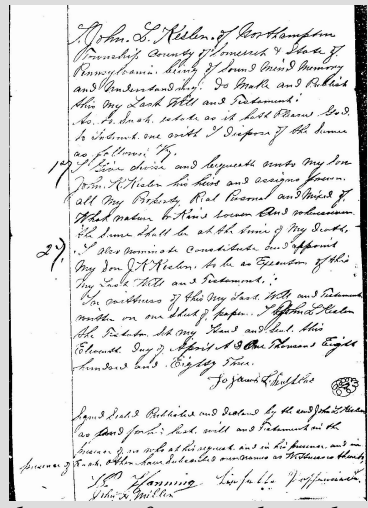 I, John. L. Keslen. of Northampton
Township County of Somerset & State of
Pennsylvania. being of Sound Mind Memory
and Understanding. do Make and Publish
this my Last Will and Testament:
As to Such estate as it hath Pleased God.
to intrust me with I dispose of the Same
as follows: Viz.
1st I Give devise and bequeath unto my Son
John. K. Keslen his heirs and assigns forever.
all my Property Real Personal and Mixed of
What nature or Kind soever And wheresoever
the Same Shall be at the time of My Death,
2d. I also nominate constitute and appoint
My Son J. K. Keslen. to be as Executor of this
My Last Will and Testament.:
In witness of this My Last Will and Testament
written on one Sheet of paper. I John L. Keslen
the Testator Set my Hand and Seal. this
Eleventh Day of April A D One Thousand Eight
hundred and Eighty Three.
Signed Sealed Published and declared by the said John L. Keslen
as and for his last will and Testament in the
presence of us who at his request and in his presence and in
presence of Each other have Subscribed our names as Witnesses thereto
John H. Miller